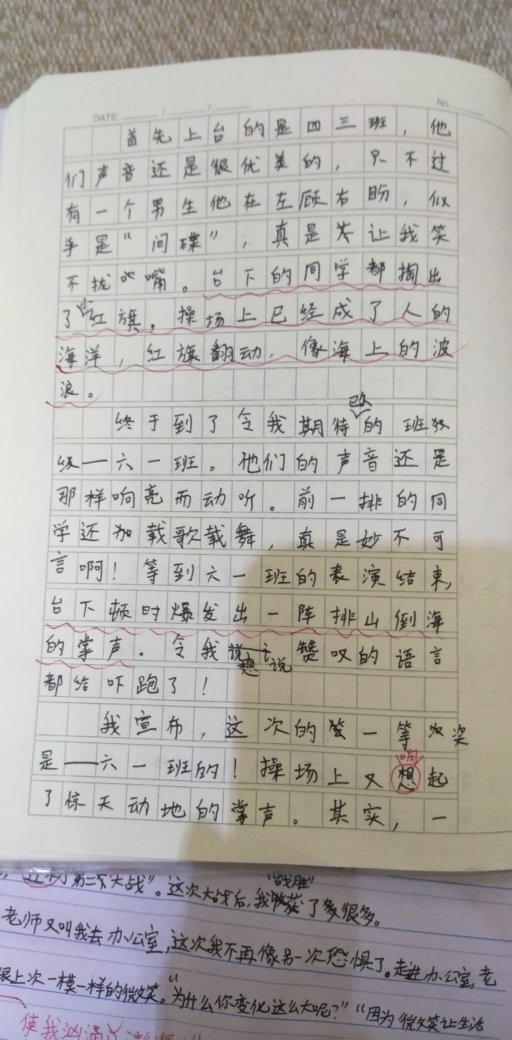 DATE
No.
首先上台的是四三班，他
们声音还是很优美的，只不过
有一个男生他在左顾右盼，似
乎是“间碟”，真是让我笑
不拢嘴。台下的同学都掏出
了小红旗。操场上已经成了人的
海洋，红旗翻动，像海上的波
浪。
终于到了令我期待已久的班
级——六一班。他们的声音还是
那样响亮而动听。前一排的同
学还加载歌载舞，真是妙不可
言啊！等到六一班的表演结束，
台下顿时爆发出一阵排山倒海
的掌声。令我想说赞叹的语言
都给吓跑了！
我宣布，这次的一等奖
是——六一班的！操场上又想起
响
了惊天动地的掌声。其实，一
第二次大战”。这次大战后，我“战胜”了多很多。
老师又叫我去办公室，这次我不再像另一次恐惧了。走进办公室，老
跟上次一模一样的微笑。“为什么你变化这么大呢？”“因为微笑让生活
使我